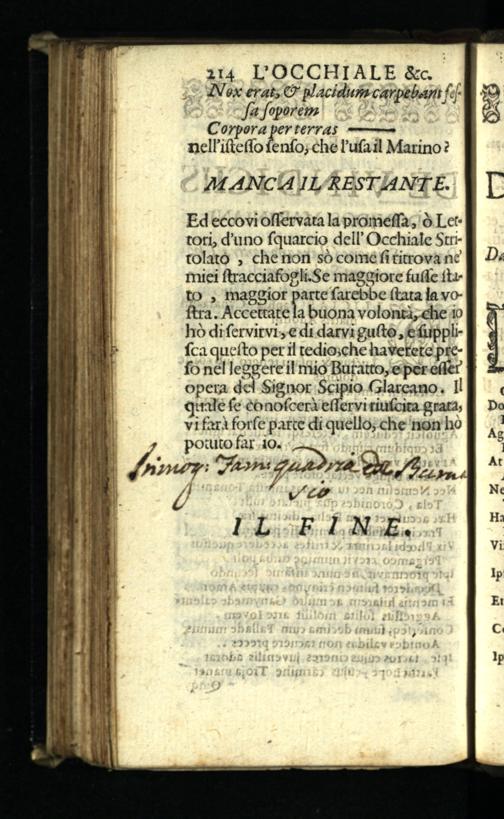 214 L'OCCHIALE &c.
Nox erat, & placidum carpebant fes-
sa soporem
Corpora per terras ———
nell'istesso senso, che l'usa il Marino?
MANCA IL RESTANTE.
Ed eccovi osservata la promessa, ò Let-
tori, d'uno squarcio dell'Occhiale Stri-
tolato, che non sò come si titrova ne'
miei stracciafogli. Se maggiore fusse sta-
to, maggior parte sarebbe stata la vo-
stra. Accettate la buona volontà, che io
hò di servirvi, e di darvi gusto, e suppli-
sca questo per il tedio, che haverete pre-
so nel leggere il mio Buratto, e per esser
opera del Signor Scipio Glareano. Il
quale se conoscerà esservi riuscita grata,
vi farà forse parte di quello, che non hò
potuto far io.
IL FINE.